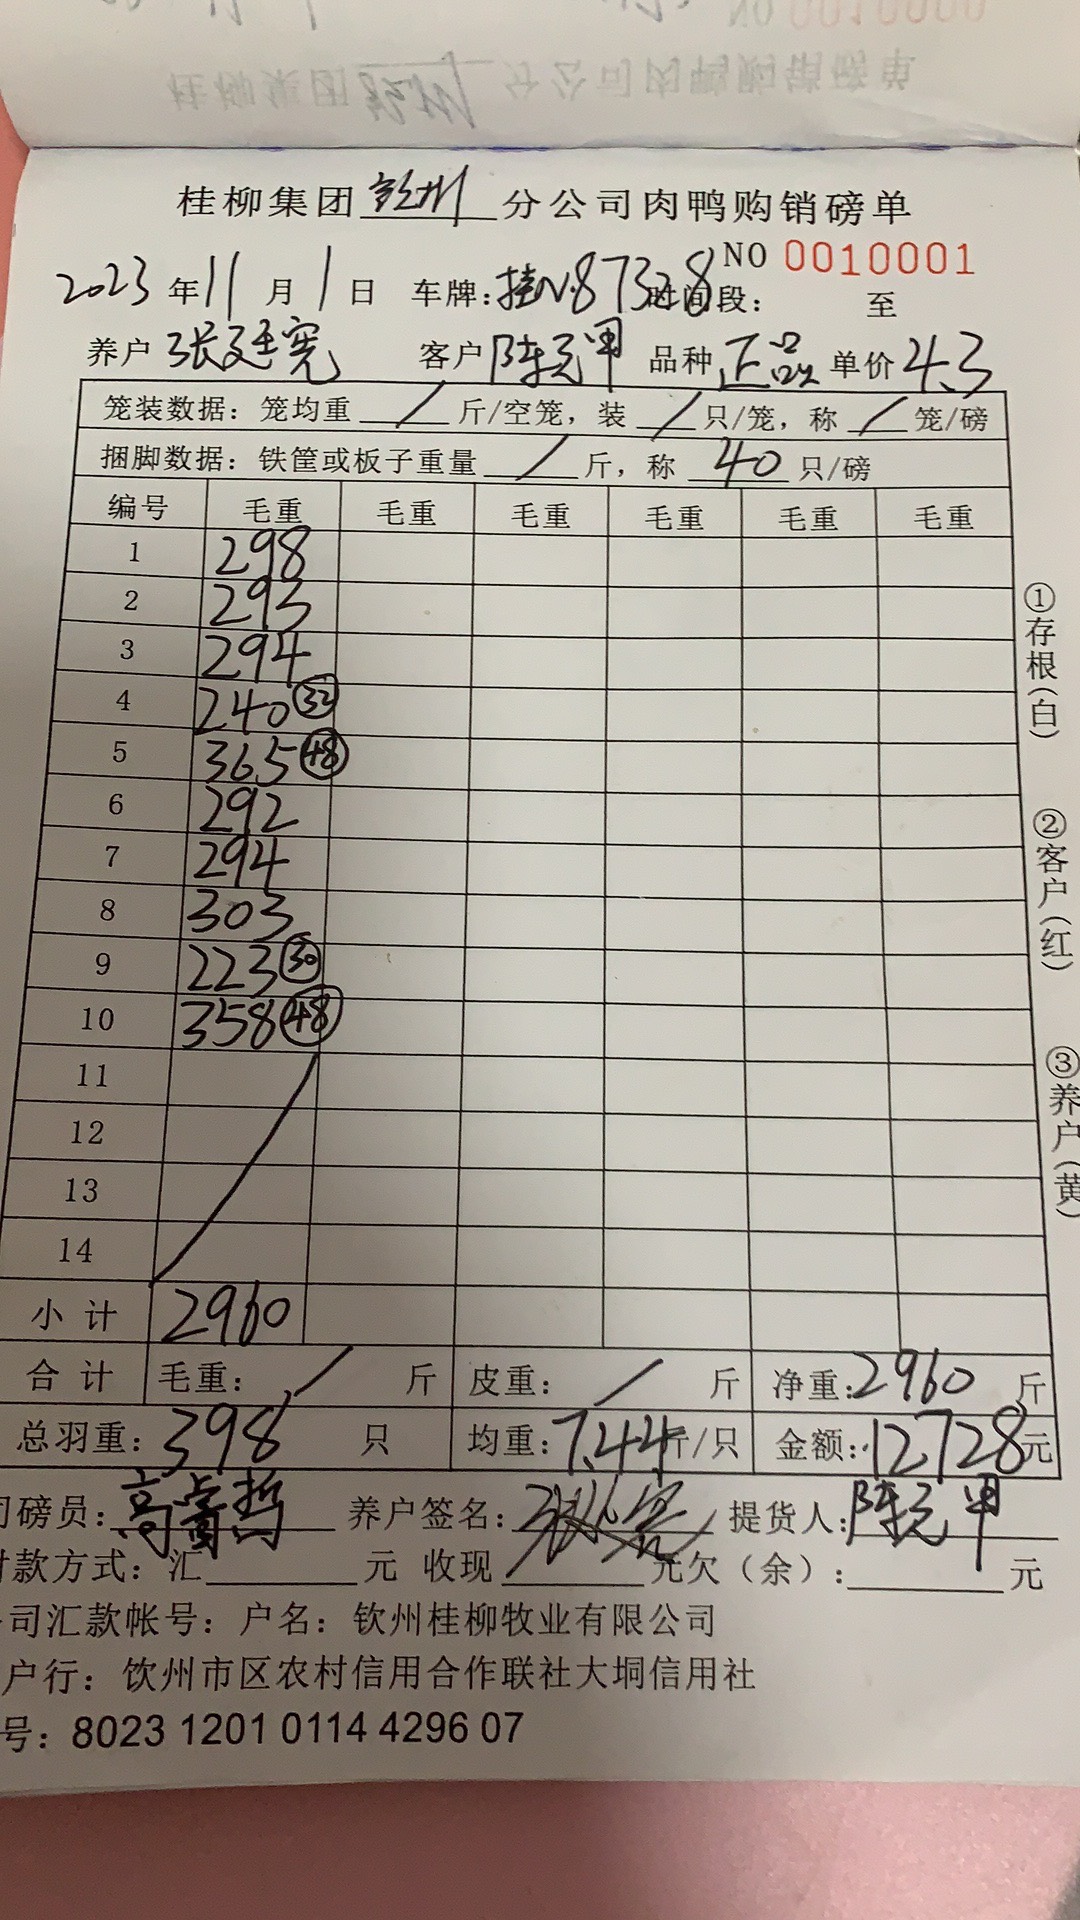 桂柳集团钦州分公司肉鸭购销磅单
NO 0010001
2023年11月1日 车牌:桂N·87328 时间段: 至
养户 张廷宪 客户 陈元甲 品种 正品 单价 4.3
笼装数据：笼均重 / 斤/空笼，装 / 只/笼，称 / 笼/磅
捆脚数据：铁筐或板子重量 / 斤，称 40 只/磅
编号 毛重 毛重 毛重 毛重 毛重 毛重
1 298
2 293
3 294
4 240 32
5 365 48
6 292
7 294
8 303
9 223 30
10 358 48
11
12
13
14
小计 2960
合计 毛重: / 斤 皮重: / 斤 净重:2960 斤
总羽重:398 只 均重:7.44斤/只 金额:12728元
司磅员:高 哲 养户签名: 提货人:陈元甲
付款方式：汇 元 收现 元欠（余）: 元
公司汇款帐号：户名：钦州桂柳牧业有限公司
户行：饮州市区农村信用合作联社大垌信用社
号：8023 1201 0114 4296 07
①存根(白)
②客户(红)
③养户(黄)